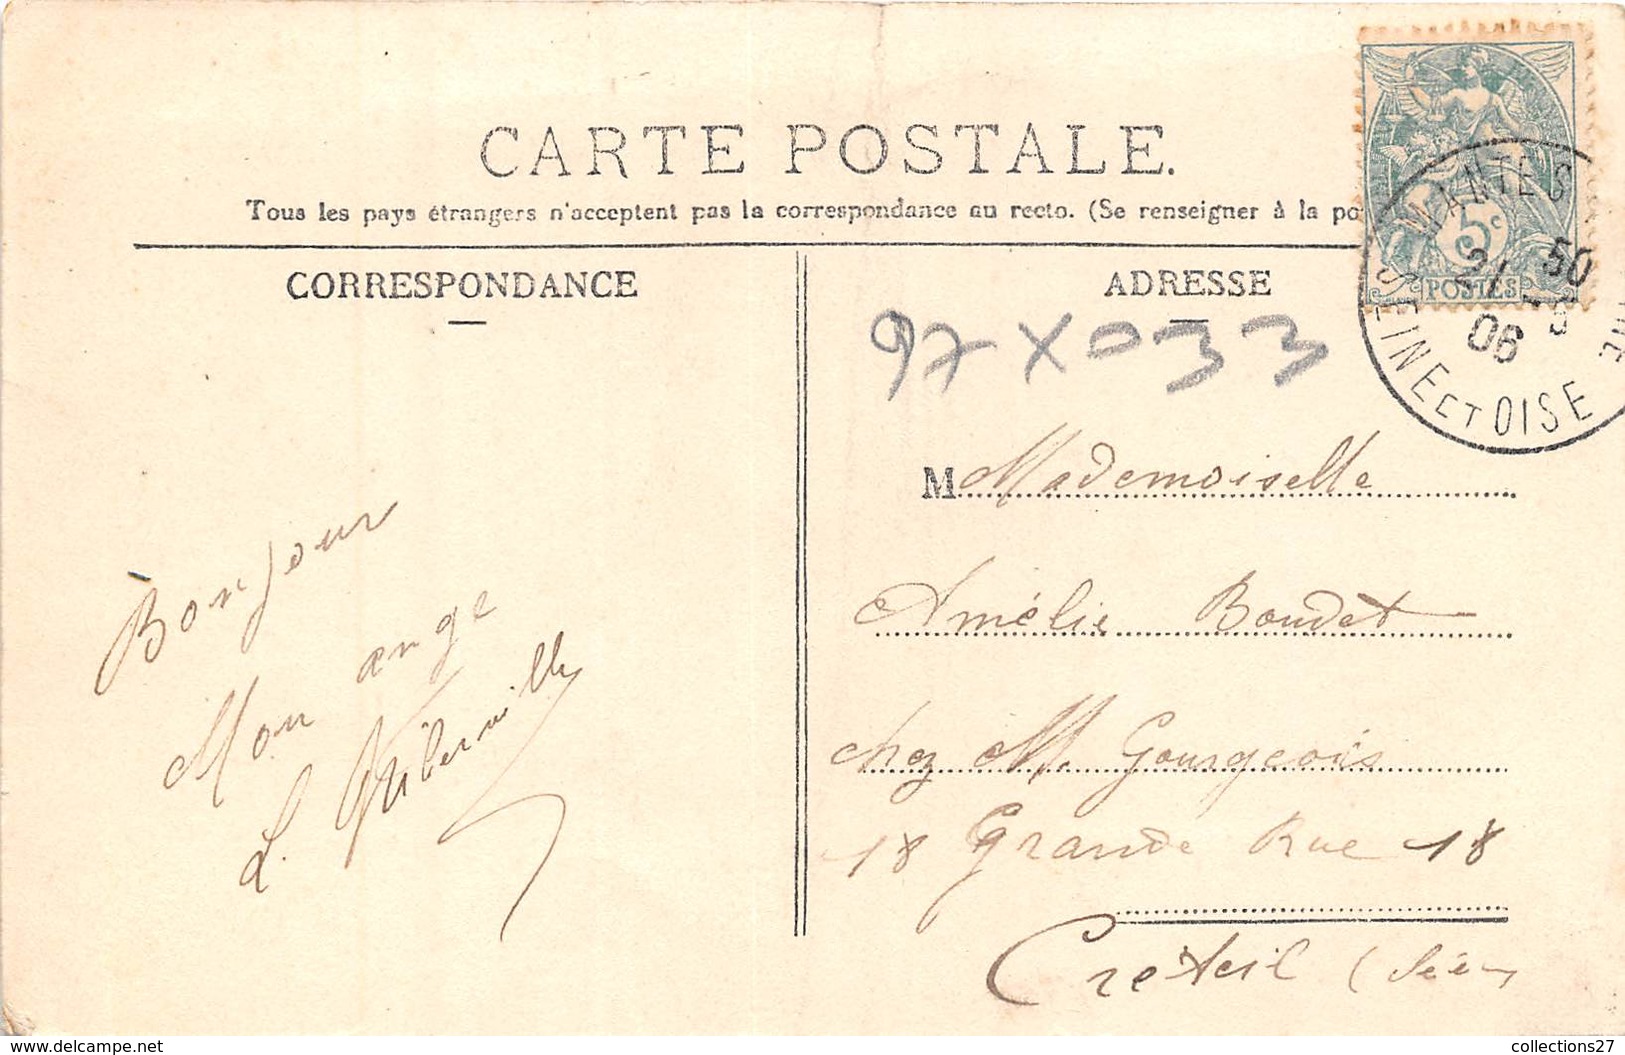 CARTE POSTALE.
Tous les pays étrangers n'acceptent pas la correspondance au recto. (Se renseigner à la po
CORRESPONDANCE
ADRESSE
5c
POSTES
MANTES
SEINE ET OISE
21
50
06
97 X 033
Bonjour
Mon ange
L. Auberville
M Mademoiselle
Amélie Boudet
chez M. Gourgeois
18 Grande Rue 18
Creteil (Seine
www.delcampe.net
collections27